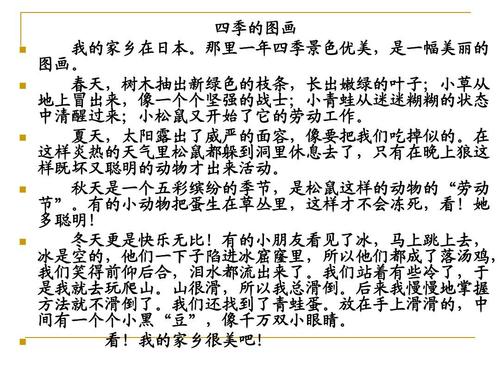 四季的图画
我的家乡在日本。那里一年四季景色优美，是一幅美丽的
图画。
春天，树木抽出新绿色的枝条，长出嫩绿的叶子；小草从
地上冒出来，像一个个坚强的战士；小青蛙从迷迷糊糊的状态
中清醒过来；小松鼠又开始了它的劳动工作。
夏天，太阳露出了威严的面容，像要把我们吃掉似的。在
这样炎热的天气里松鼠都躲到洞里休息去了，只有在晚上狼这
样既坏又聪明的动物才出来活动。
秋天是一个五彩缤纷的季节，是松鼠这样的动物的“劳动
节”。有的小动物把蛋生在草丛里，这样才不会冻死，看！她
多聪明！
冬天更是快乐无比！有的小朋友看见了冰，马上跳上去，
冰是空的，他们一下子陷进冰窟窿里，所以他们都成了落汤鸡，
我们笑得前仰后合，泪水都流出来了。我们站着有些冷了，于
是我就去玩爬山。山很滑，所以我总滑倒。后来我慢慢地掌握
方法就不滑倒了。我们还找到了青蛙蛋。放在手上滑滑的，中
间有一个个小黑“豆”，像千万双小眼睛。
看！我的家乡很美吧！